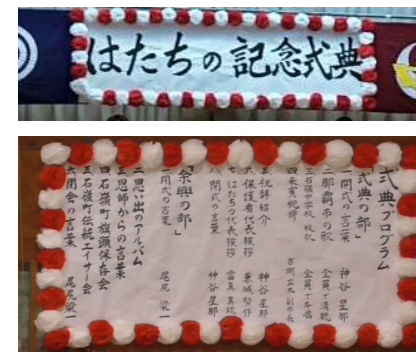 はたちの記念式典
式典プログラム
「式典の部」
一開式の言葉 神谷星那
二那覇市の歌 全員で清聴
三石嶺中学校 校歌 全員で斉唱
四来賓祝辞
五祝辞紹介 神谷星那
六保護者代表挨拶 兼城賢作
七はたちの代表挨拶
八閉式の言葉 神谷星那
「余興の部」
一開式の言葉 尾尻栄一
二思い出のアルバム
三恩師からの言葉
四石嶺町旗頭保存会
五石嶺町伝統エイサー会
六閉会の言葉 尾尻栄一